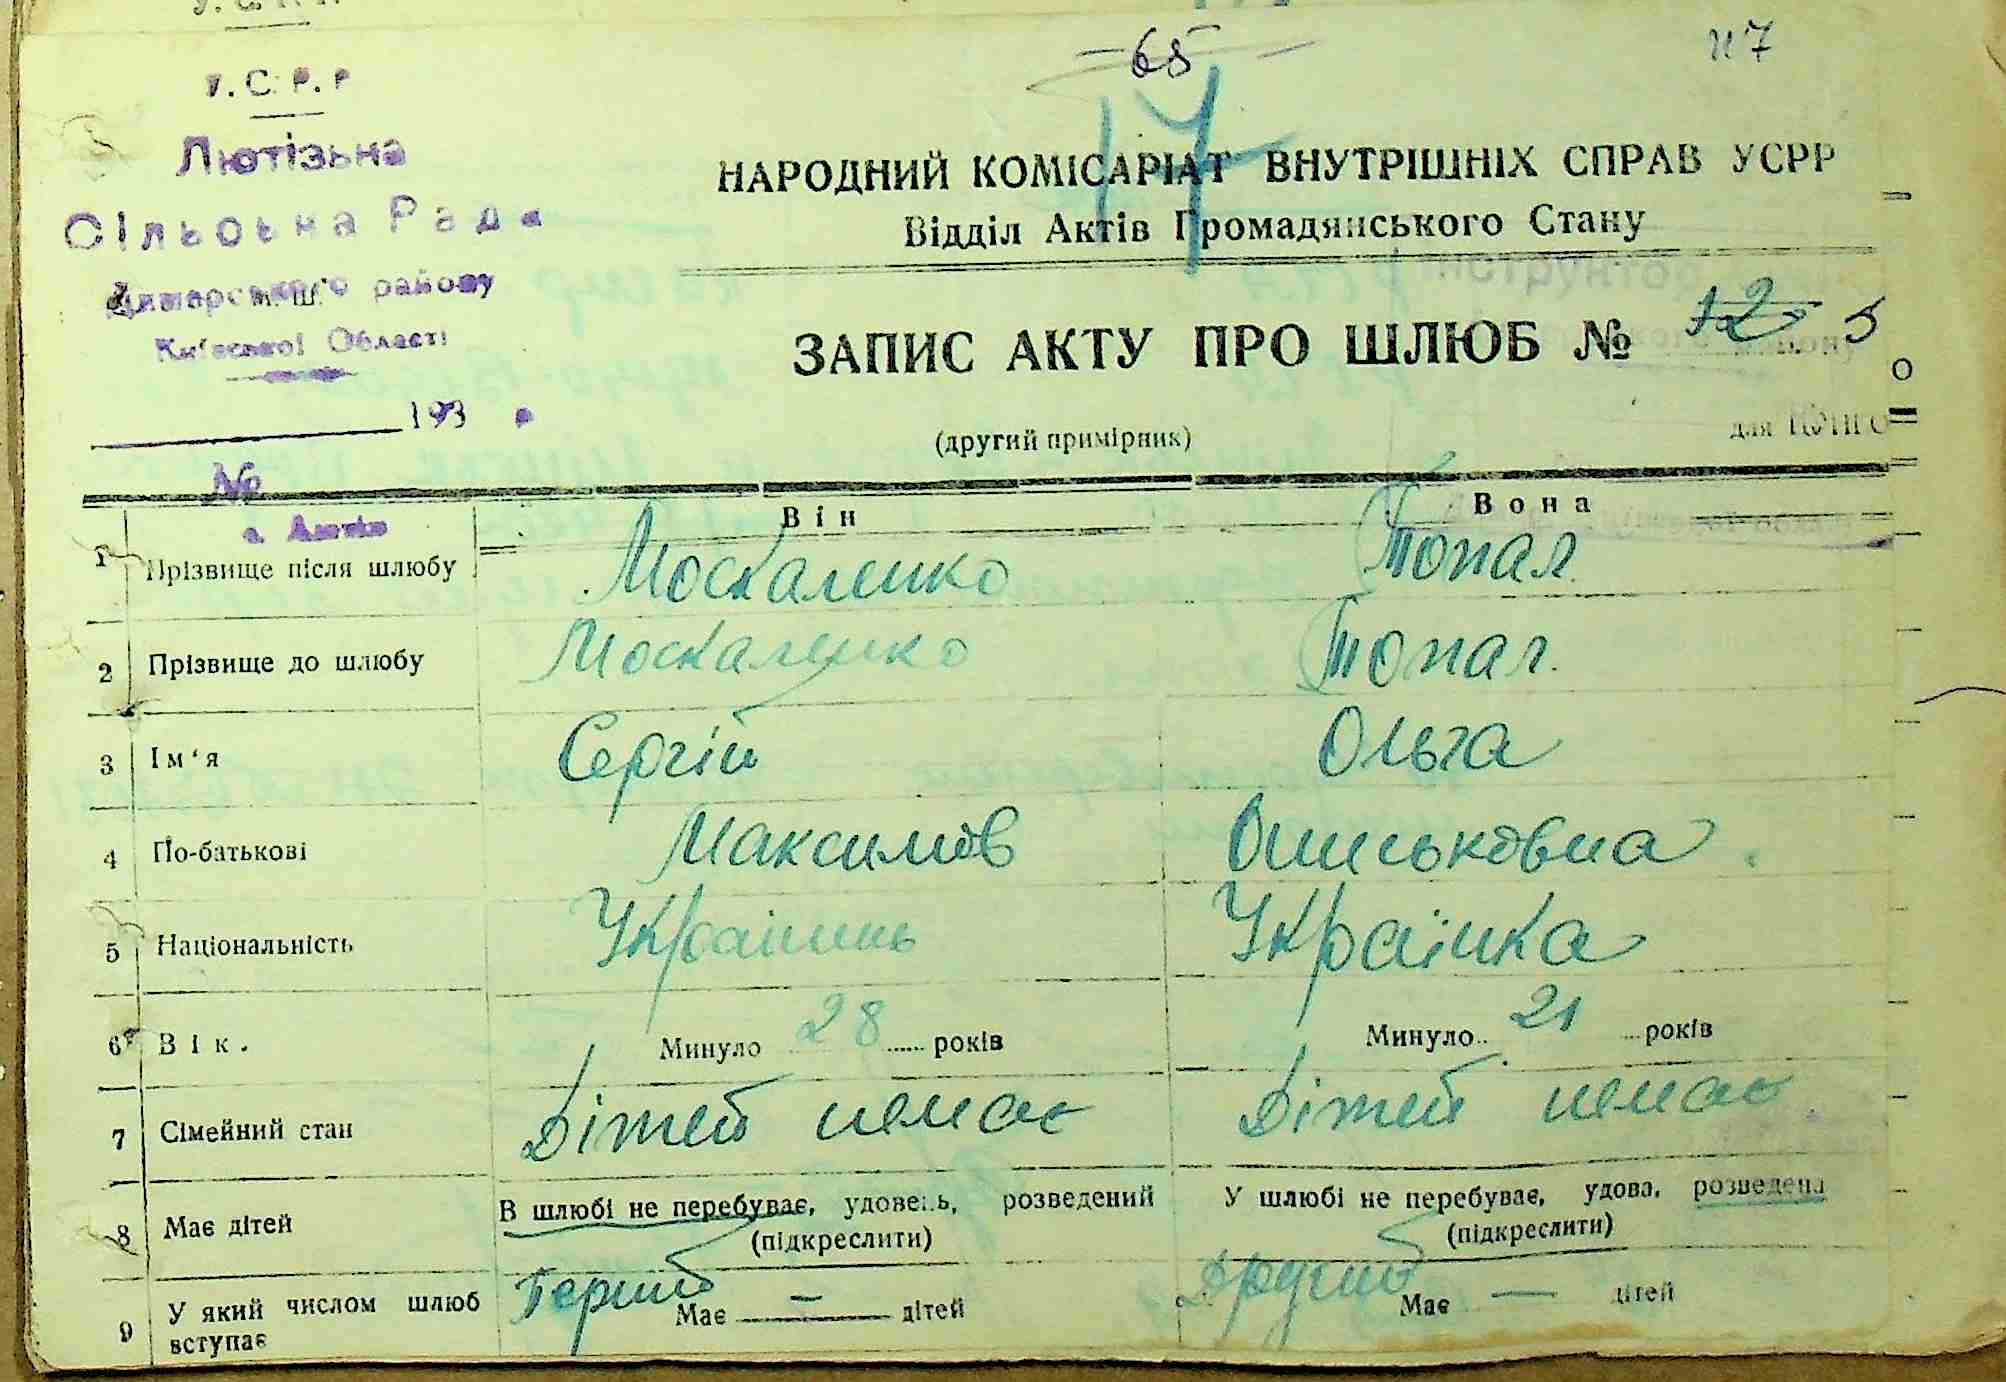 У.С.Р.Р
65
117
17
Лютізьна
Сільська Рада
Димарського району
Київської Області
193
№
с. Лютіж
НАРОДНИЙ КОМІСАРІАТ ВНУТРІШНІХ СПРАВ УСРР
Відділ Актів Громадянського Стану
ЗАПИС АКТУ ПРО ШЛЮБ № 12 5
(другий примірник)
для
Він Вона
1 Прізвище після шлюбу Москаленко Топал
2 Прізвище до шлюбу Москаленко Топал.
3 Ім'я Сергій Ольга
4 По-батькові Максимов Ониськовна
5 Національність Українць Українка
6 Вік. Минуло 28 років Минуло 21 років
7 Сімейний стан Дітей немає Дітей немає
8 Має дітей В шлюбі не перебуває, удовець, розведений (підкреслити) У шлюбі не перебуває, удова, розведена (підкреслити)
9 У який числом шлюб вступає Перший Має — дітей Другий Має — дітей